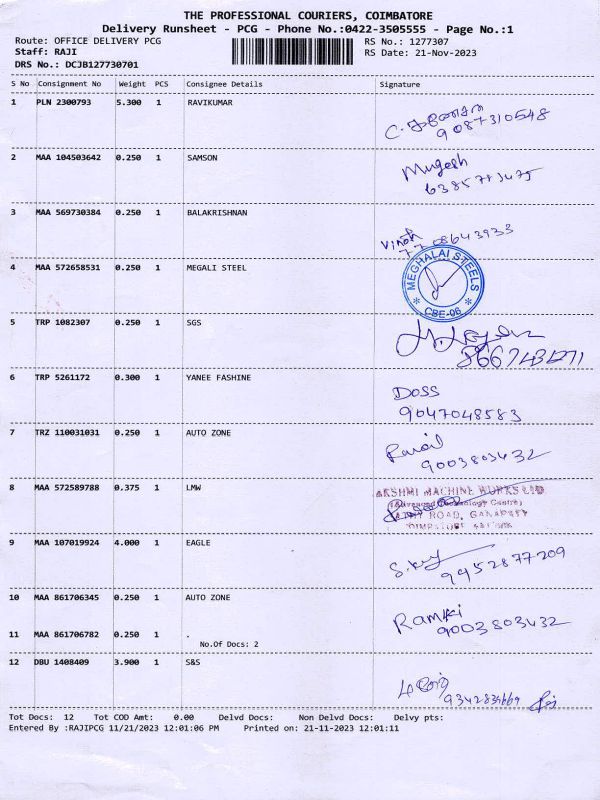 THE PROFESSIONAL COURIERS, COIMBATORE
Delivery Runsheet - PCG - Phone No.:0422-3505555 - Page No.:1
Route: OFFICE DELIVERY PCG RS No.: 1277307
Staff: RAJI RS Date: 21-Nov-2023
DRS No.: DCJB127730701
S No Consignment No Weight PCS Consignee Details Signature
1 PLN 2300793 5.300 1 RAVIKUMAR
9087310548
2 MAA 104503642 0.250 1 SAMSON
Mugesh
3 MAA 569730384 0.250 1 BALAKRISHNAN
Vinoth
4 MAA 572658531 0.250 1 MEGALI STEEL
MEGHALAI STEELS
CBE-06
5 TRP 1082307 0.250 1 SGS
6 TRP 5261172 0.300 1 YANEE FASHINE
Doss
9047048583
7 TRZ 110031031 0.250 1 AUTO ZONE
9003803432
8 MAA 572589788 0.375 1 LMW
AKSHMI MACHINE WORKS LTD
ROAD, GANAPATHY
9 MAA 107019924 4.000 1 EAGLE
9952877209
10 MAA 861706345 0.250 1 AUTO ZONE
Ramki
9003803432
11 MAA 861706782 0.250 1 .
No.Of Docs: 2
12 DBU 1408409 3.900 1 S&S
Tot Docs: 12 Tot COD Amt: 0.00 Delvd Docs: Non Delvd Docs: Delvy pts:
Entered By :RAJIPCG 11/21/2023 12:01:06 PM Printed on: 21-11-2023 12:01:11